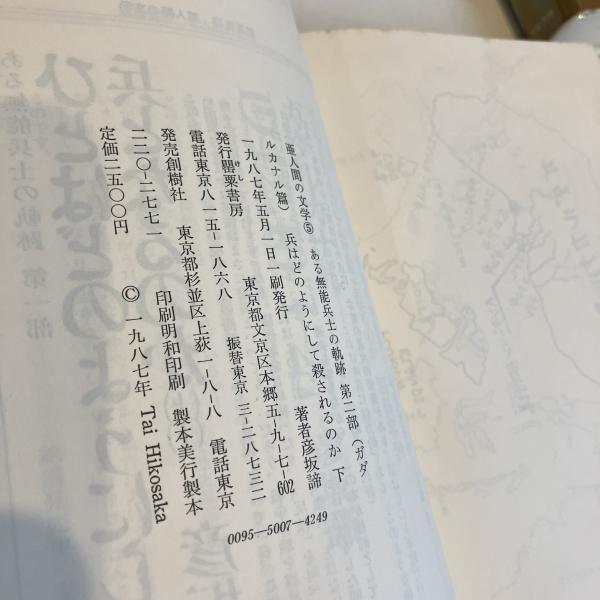 亜人間の文学⑤ ある無能兵士の軌跡 第二部(ガダ
ルカナル篇) 兵はどのようにして殺されるのか 下
一九八七年五月一日一刷発行 著者彦坂諦
発行罌粟書房 東京都文京区本郷五-九-七-602
けし
電話東京八一五-一八六八 振替東京 三-二八七三二
発売創樹社 東京都杉並区上荻一-八-八 電話東京
二二〇-二七七一 印刷明和印刷 製本美行製本
定価二五〇〇円 © 一九八七年 Tai Hikosaka
0095-5007-4249